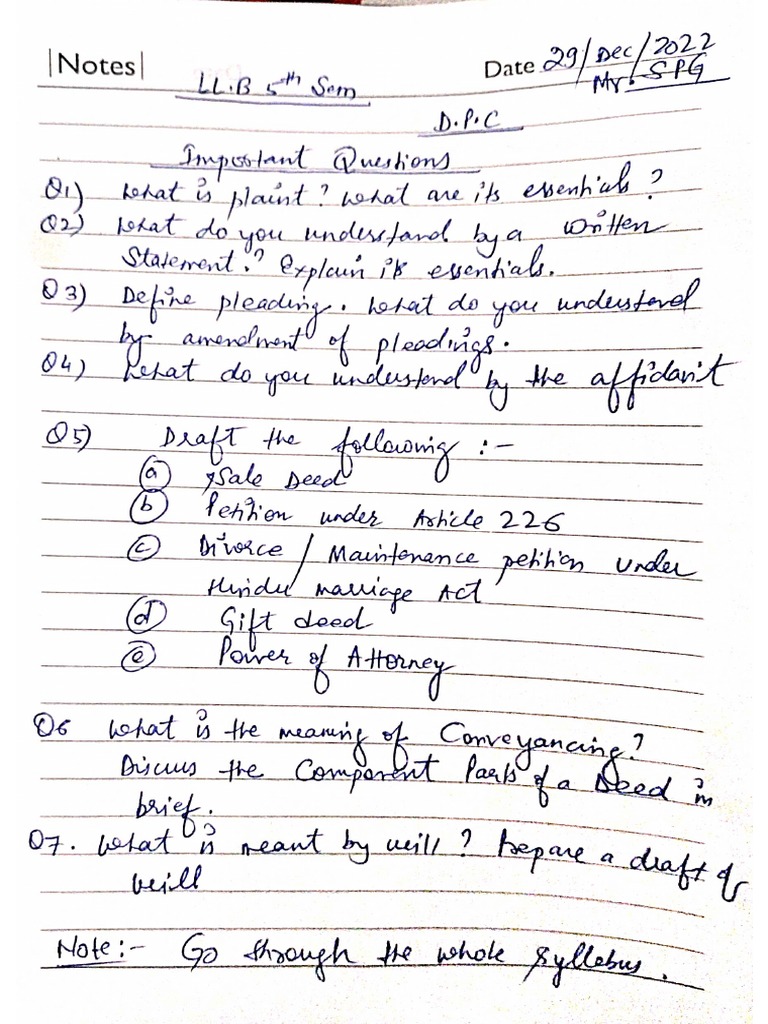 |Notes|
Date 29/Dec/2022
LL.B 5th Sem
Mr. SPG
D.P.C
Important Questions
Q1) What is plaint? What are its essentials?
Q2) What do you understand by a written
Statement.? Explain its essentials.
Q3) Define pleading. What do you understand
by amendment of pleadings.
Q4) What do you understand by the affidavit
Q5) Draft the following :-
(a) Sale Deed
(b) Petition under Article 226
(c) Divorce / Maintenance petition under
Hindu marriage Act
(d) Gift deed
(e) Power of Attorney
Q6 What is the meaning of Conveyancing?
Discuss the Component Parts of a Deed in
brief.
Q7. What is meant by will? Prepare a draft of
will
Note:- Go through the whole Syllebus.